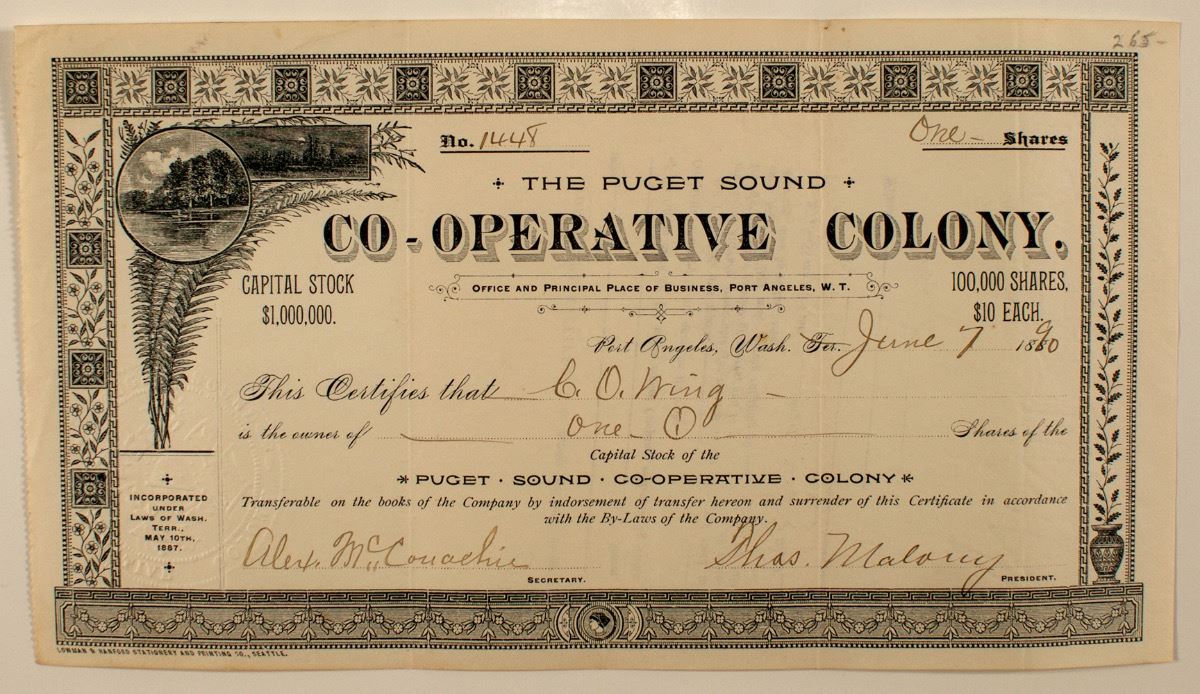 265-
No. 1448 One - Shares
THE PUGET SOUND
CO-OPERATIVE COLONY.
CAPITAL STOCK
$1,000,000.
OFFICE AND PRINCIPAL PLACE OF BUSINESS, PORT ANGELES, W. T.
100,000 SHARES,
$10 EACH.
Port Angeles, Wash. Ter. June 7 1890
This Certifies that C. O. Wing -
is the owner of One - (1) Shares of the
Capital Stock of the
PUGET · SOUND · CO-OPERATIVE · COLONY
Transferable on the books of the Company by indorsement of transfer hereon and surrender of this Certificate in accordance
with the By-Laws of the Company.
INCORPORATED
UNDER
LAWS OF WASH.
TERR.,
MAY 10TH,
1887.
Alex. McConachie
SECRETARY.
Thos. Malony
PRESIDENT.
LOWMAN & HANFORD STATIONERY AND PRINTING CO., SEATTLE.